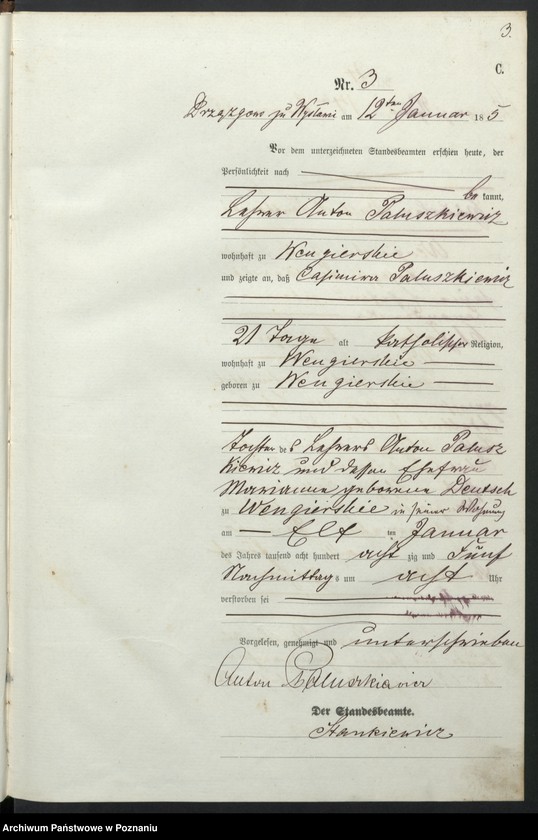 3.
C.
Nr. 3
am 12ten Januar 1885
Vor dem unterzeichneten Standesbeamten erschien heute, der
Persönlichkeit nach
be kannt,
Lehrer Anton Paluszkiewicz
wohnhaft zu Wengierskie
und zeigte an, daß Casimira Paluszkiewicz
21 Tage alt katholischer Religion,
wohnhaft zu Wengierskie
geboren zu Wengierskie
Tochter des Lehrers Anton Palusz
kiewicz und dessen Ehefrau
Marianne geborene Deutsch
zu Wengierskie in seiner Wohnung
am Elf ten Januar
des Jahres tausend acht hundert acht zig und Fünf
Nachmittags um acht Uhr
verstorben sei
Vorgelesen, genehmigt und unterschrieben
Anton Paluszkiewicz
Der Standesbeamte.
Stankiewicz
Archiwum Państwowe w Poznaniu